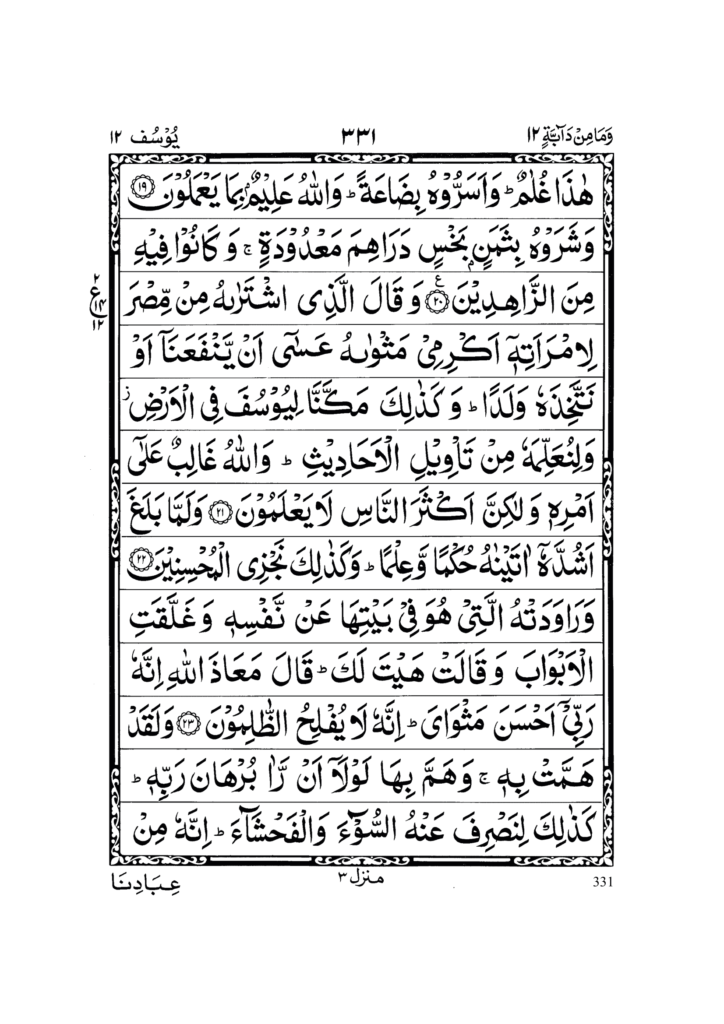 وَمَا مِنْ دَآبَّةٍ ١٢ ٣٣١ يُوْسُف ١٢
هٰذَا غُلٰمٌ ؕ وَاَسَرُّوْهُ بِضَاعَةً ؕ وَاللّٰهُ عَلِيْمٌۢ بِمَا يَعْمَلُوْنَ ۝۱۹
وَشَرَوْهُ بِثَمَنٍۭ بَخْسٍ دَرَاهِمَ مَعْدُوْدَةٍ ۚ وَكَانُوْا فِيْهِ
مِنَ الزَّاهِدِيْنَ ۝۲۰ ع وَقَالَ الَّذِى اشْتَرٰىهُ مِنْ مِّصْرَ
٢ ع ١٤ ١٢
لِامْرَاَتِهٖٓ اَكْرِمِىْ مَثْوٰىهُ عَسٰٓى اَنْ يَّنْفَعَنَاۤ اَوْ
نَتَّخِذَهٗ وَلَدًا ؕ وَكَذٰلِكَ مَكَّنَّا لِيُوْسُفَ فِى الْاَرْضِ ز
وَلِنُعَلِّمَهٗ مِنْ تَاْوِيْلِ الْاَحَادِيْثِ ؕ وَاللّٰهُ غَالِبٌ عَلٰٓى
اَمْرِهٖ وَلٰكِنَّ اَكْثَرَ النَّاسِ لَا يَعْلَمُوْنَ ۝۲۱ وَلَمَّا بَلَغَ
اَشُدَّهٗۤ اٰتَيْنٰهُ حُكْمًا وَّعِلْمًا ؕ وَكَذٰلِكَ نَجْزِى الْمُحْسِنِيْنَ ۝۲۲
وَرَاوَدَتْهُ الَّتِىْ هُوَ فِىْ بَيْتِهَا عَنْ نَّفْسِهٖ وَغَلَّقَتِ
الْاَبْوَابَ وَقَالَتْ هَيْتَ لَكَ ؕ قَالَ مَعَاذَ اللّٰهِ اِنَّهٗ
رَبِّىْۤ اَحْسَنَ مَثْوَاىَ ؕ اِنَّهٗ لَا يُفْلِحُ الظّٰلِمُوْنَ ۝۲۳ وَلَقَدْ
هَمَّتْ بِهٖ ۚ وَهَمَّ بِهَا لَوْلَاۤ اَنْ رَّاٰ بُرْهَانَ رَبِّهٖ ؕ
كَذٰلِكَ لِنَصْرِفَ عَنْهُ السُّوْٓءَ وَالْفَحْشَآءَ ؕ اِنَّهٗ مِنْ
عِبَادِنَا منزل ٣ 331